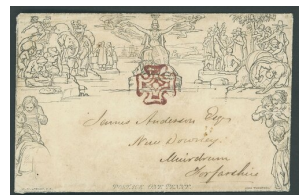 James Anderson Esqr
New Downley
Muirdrum
Forfarshire
POSTAGE ONE PENNY.